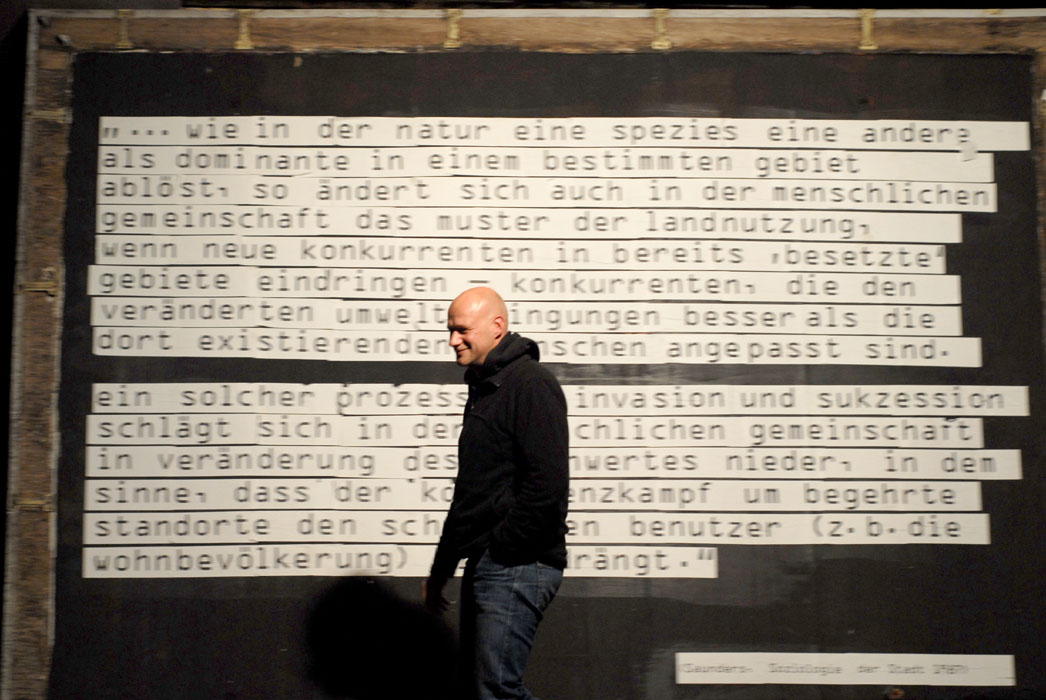 „... wie in der natur eine spezies eine andere
als dominante in einem bestimmten gebiet
ablöst, so ändert sich auch in der menschlichen
gemeinschaft das muster der landnutzung,
wenn neue konkurrenten in bereits ‚besetzte‘
gebiete eindringen – konkurrenten, die den
veränderten umwelt ingungen besser als die
dort existierenden nschen angepasst sind.
ein solcher prozess invasion und sukzession
schlägt sich in der chlichen gemeinschaft
in veränderung des nwertes nieder, in dem
sinne, dass der ko enzkampf um begehrte
standorte den sch en benutzer (z.b. die
wohnbevölkerung) rängt.“
(Saunders, Soziologie der Stadt 1987)